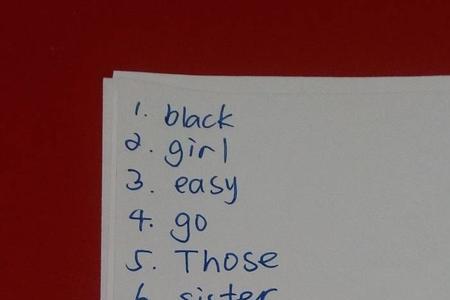 1. black
2. girl
3. easy
4. go
5. Those
6. sister